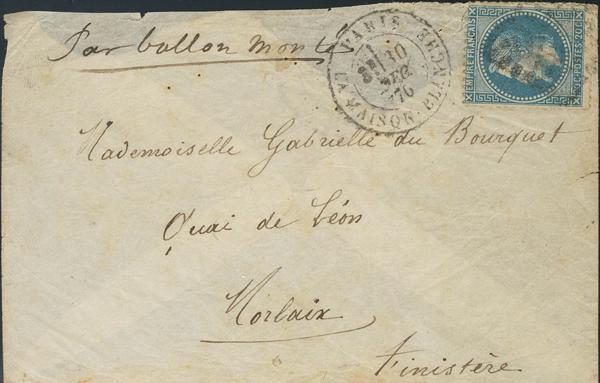 Par ballon monté
PARIS LA MAISON-BLANCHE
30
DEC
70
EMPIRE FRANÇAIS
POSTES 20C
Mademoiselle Gabrielle du Bourquet
Quai de Léon
Morlaix
Finistère